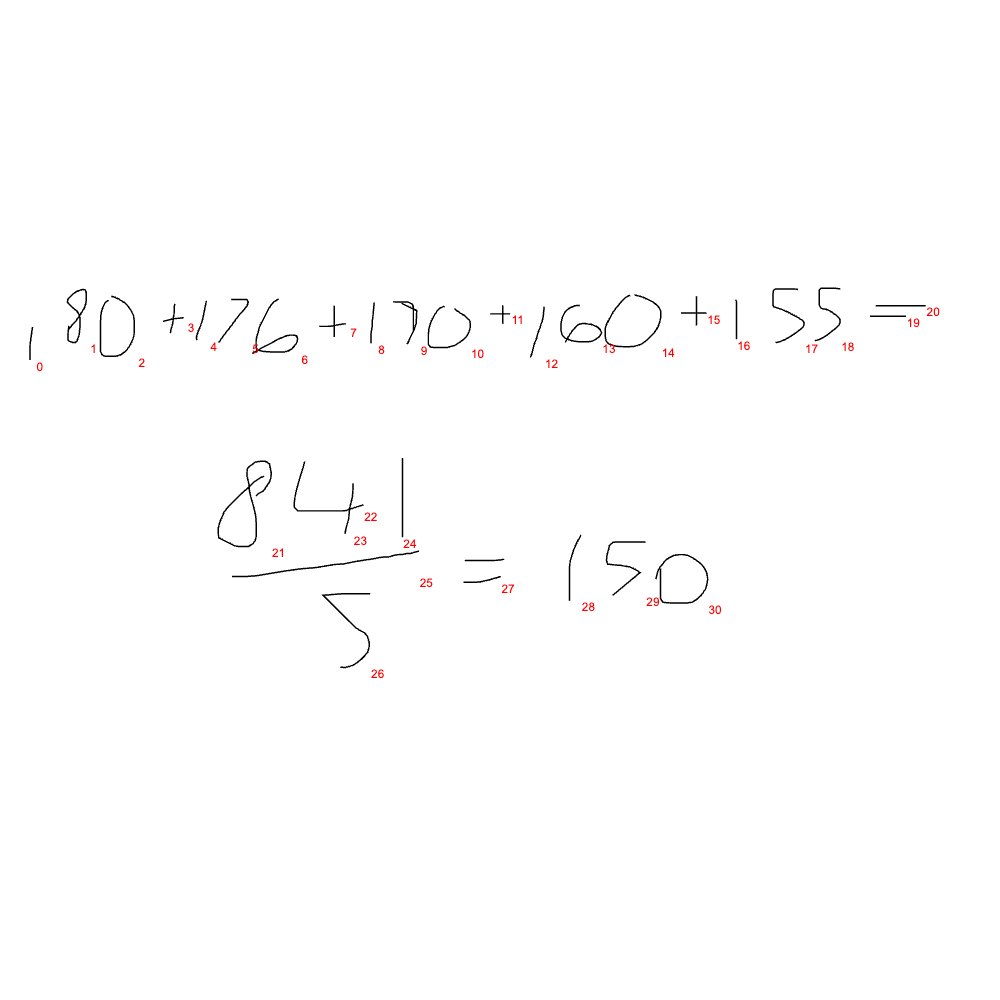 180+176+170+160+155=
0 1 2 3 4 5 6 7 8 9 10 11 12 13 14 15 16 17 18 19 20
841/5=150
21 22 23 24 25 26 27 28 29 30